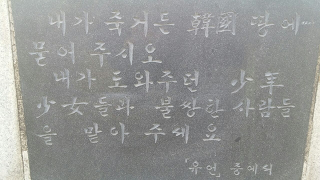 내가 죽거든 韓國 땅에…
묻어 주시오
내가 도와주던 少年
少女들과 불쌍한 사람들
을 맡아 주세요
「유언」중에서